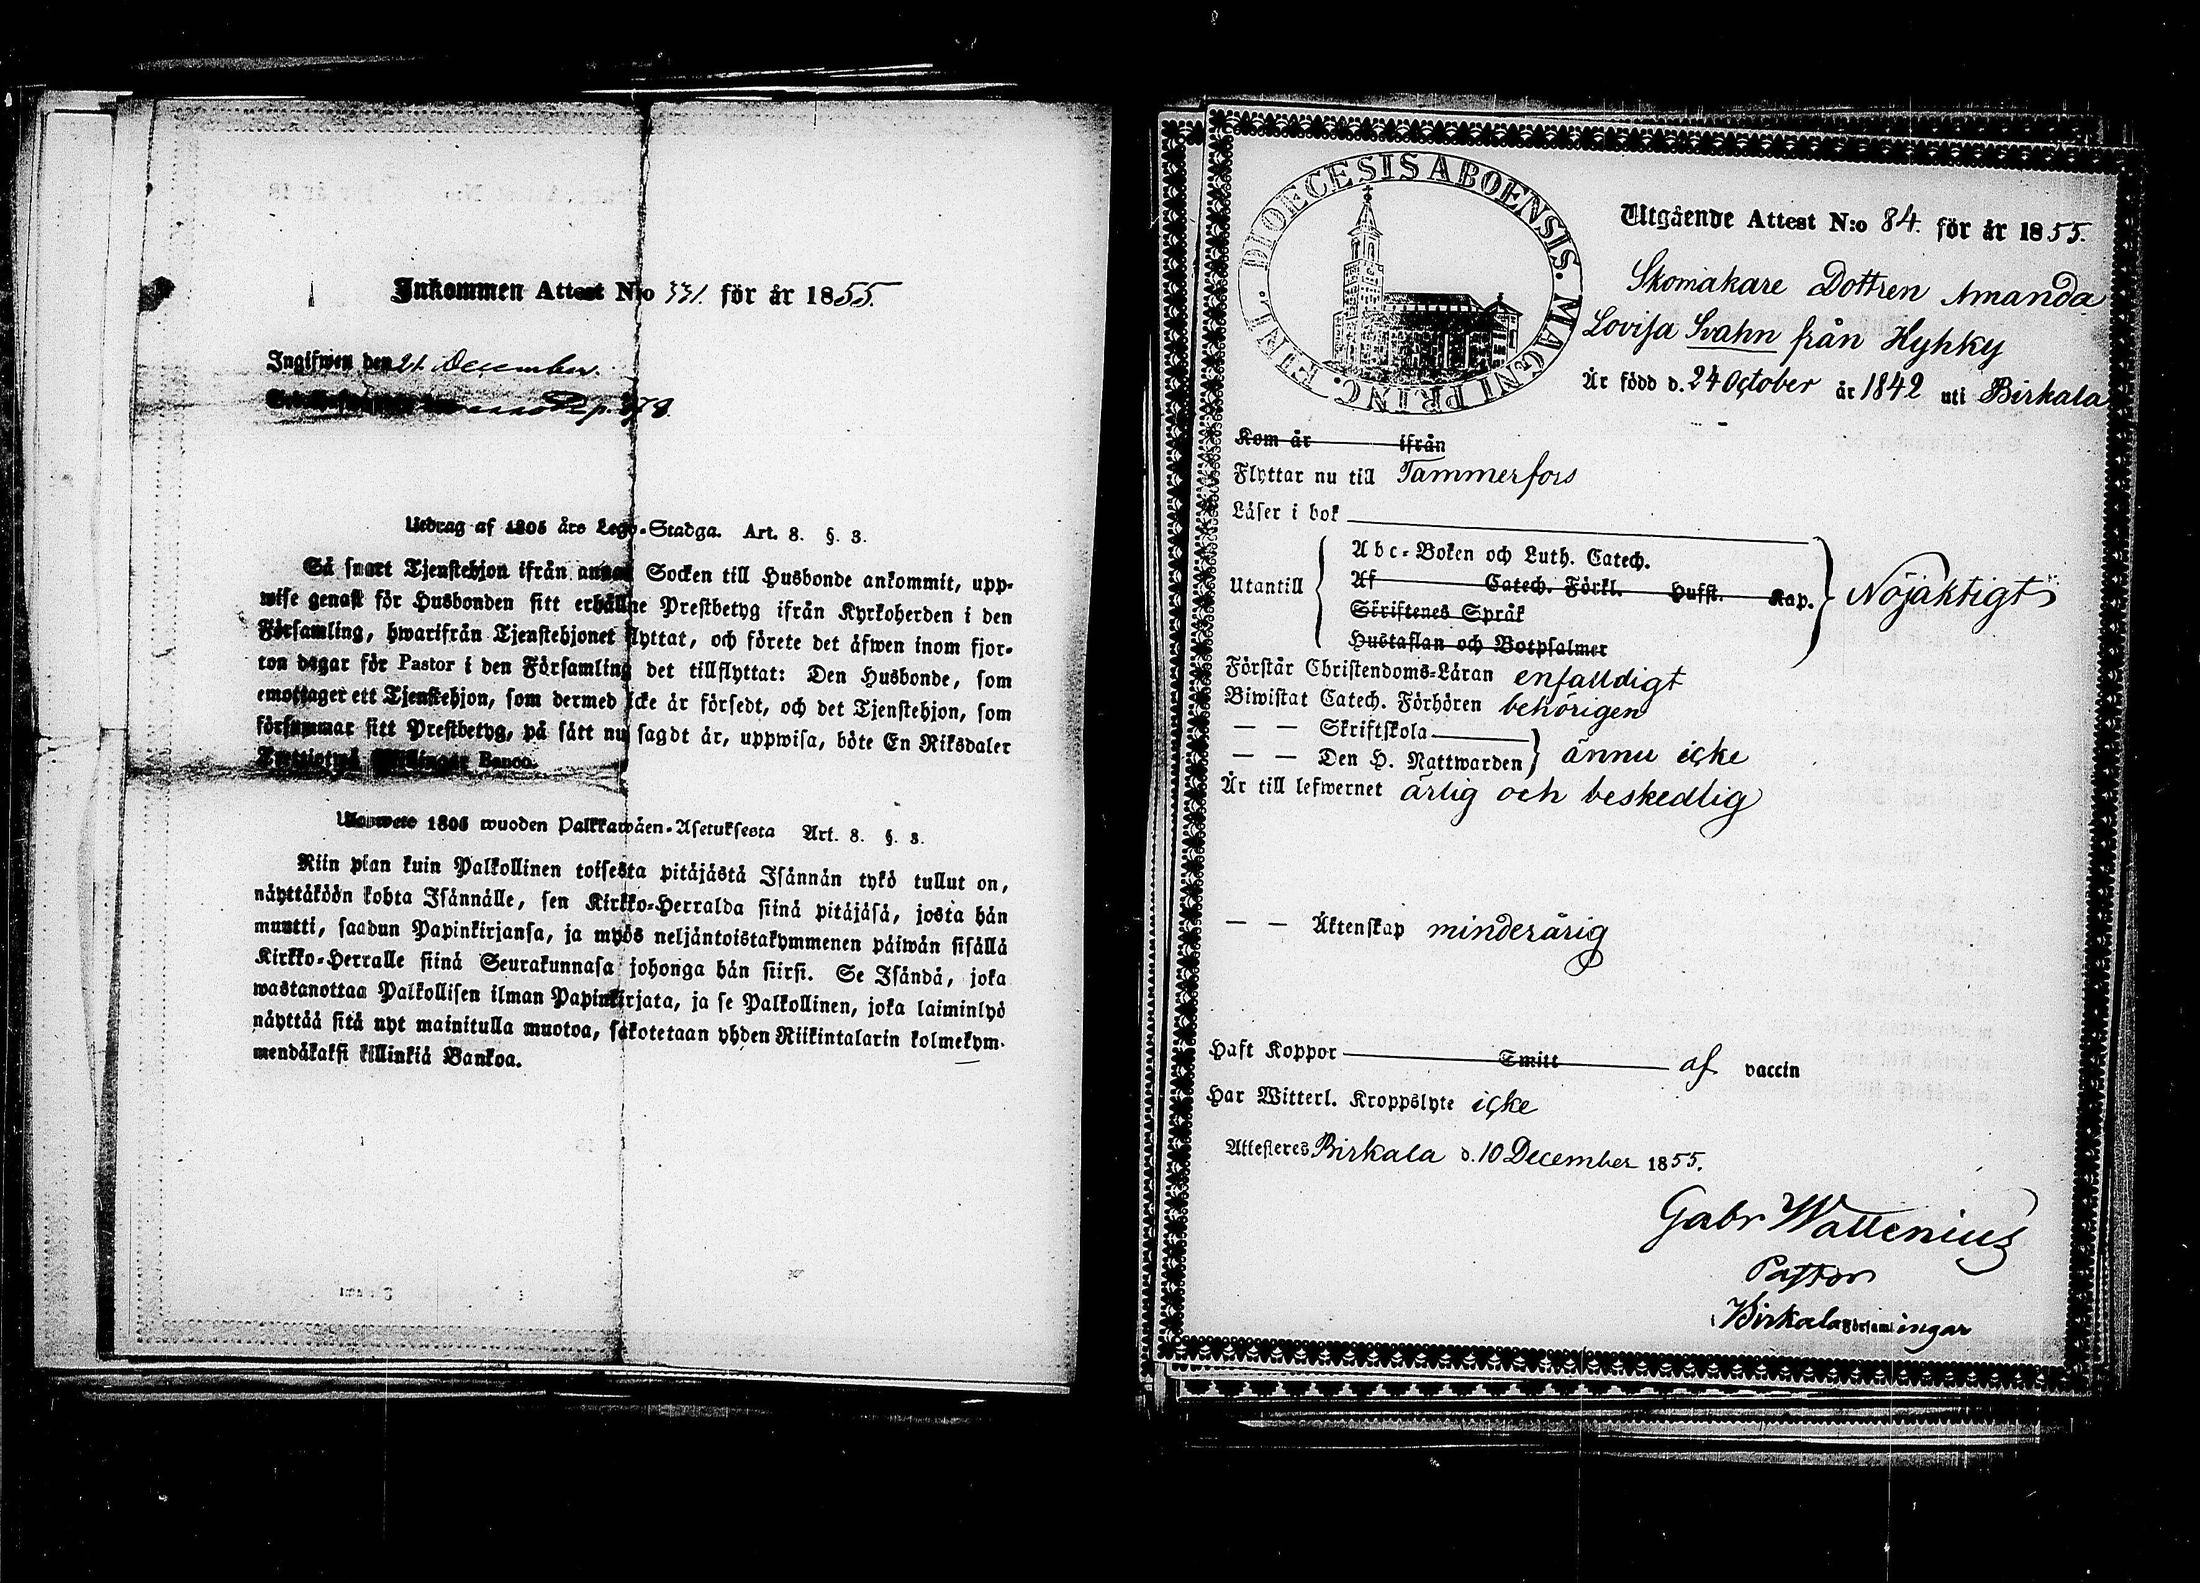 Inkommen Attest N:o 331. för år 1855.
Ingifwen den 21. December.
p. 378.
Utdrag af 1805 års Lego-Stadga. Art. 8. §. 3.
Så snart Tjenstehjon ifrån annan Socken till Husbonde ankommit, upp-
wise genast för Husbonden sitt erhållne Prestbetyg ifrån Kyrkoherden i den
Församling, hwarifrån Tjenstehjonet flyttat, och förete det äfwen inom fjor-
ton dagar för Pastor i den Församling det tillflyttat: Den Husbonde, som
emottager ett Tjenstehjon, som dermed icke är försedt, och det Tjenstehjon, som
försummar sitt Prestbetyg, på sätt nu sagdt är, uppwisa, böte En Riksdaler
Banco.
1805 wuoden Palkkawäen-Asetuksesta Art. 8. §. 3.
Niin pian kuin Palkollinen toisesta pitäjästä Isännän tykö tullut on,
näyttäköön kohta Isännälle, sen Kirkko-Herralda siinä pitäjäsä, josta hän
muutti, saadun Papinkirjansa, ja myös neljäntoistakymmenen päiwän sisällä
Kirkko-Herralle siinä Seurakunnasa johonga hän siirsi. Se Isändä, joka
wastanottaa Palkollisen ilman Papinkirjata, ja se Palkollinen, joka laiminlyö
näyttää sitä nyt mainitulla muotoa, sakotetaan yhden Riikintalarin kolmekym-
mendäkaksi killinkiä Bankoa.
DIOECESIS ABOENSIS. MAGNI PRINC. FINL.
Utgående Attest N:o 84. för år 1855.
Skomakare Dottren Amanda
Lovisa Svahn från Hyhky
Är född d. 24 October år 1842 uti Birkala
Kom år ifrån
Flyttar nu till Tammerfors
Läser i bok
Abc-Boken och Luth. Catech.
Utantill Af Catech. Förkl. Hufst. Kap. Nöjaktigt
Skriftenes Språk
Hustaflan och Botpsalmer
Förstår Christendoms-Läran enfalldigt
Biwistat Catech. Förhören behörigen
— — Skriftskola
— — Den H. Nattwarden ännu icke
Är till lefwernet ärlig och beskedlig
— — Äktenskap minderårig
Haft Koppor Smitt af vaccin
Har Witterl. Kroppslyte icke
Attesteres Birkala d. 10 December 1855.
Gabr Wallenius
Pastor
i Birkala Församlingar